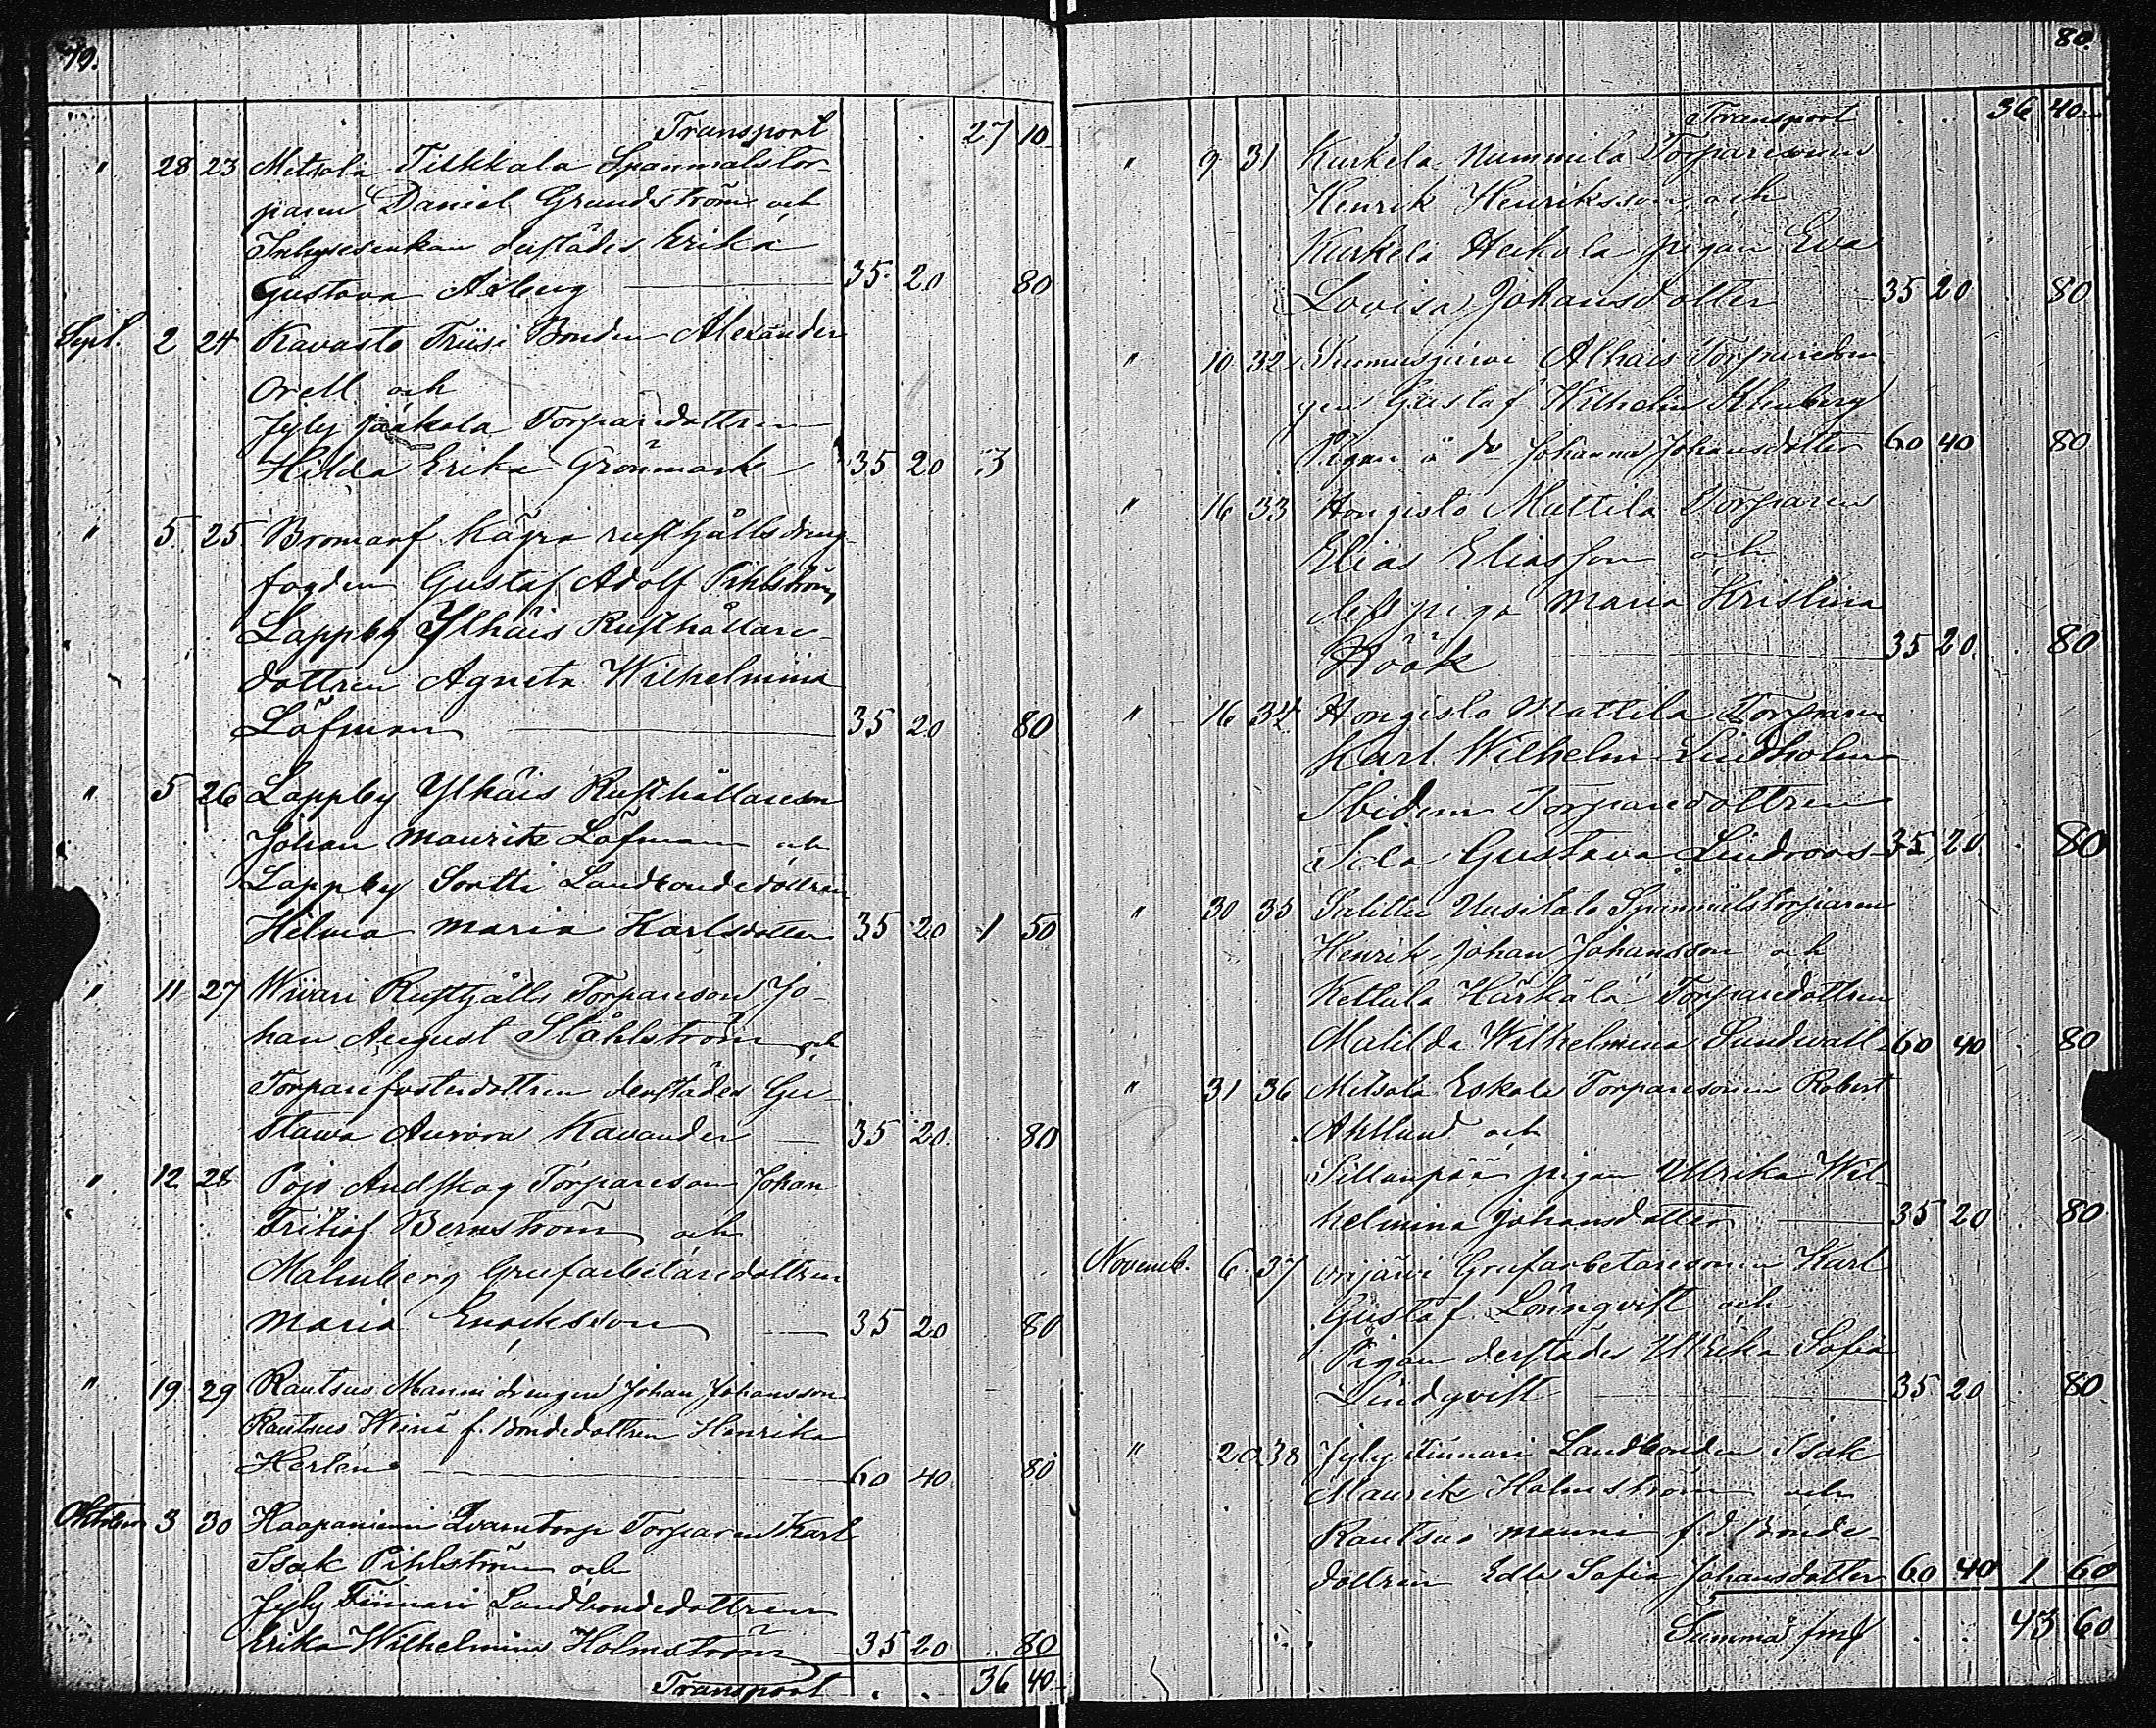 79.
Transport 27 10
" 28 23 Metsola Tilkkala Spanmalstor-
paren Daniel Grundström och
Inhysesenkan derstädes Erika
Gustava Asberg 35 20 80
Sept. 2 24 Kavasto Friisi Bonden Alexander
Orell och
Jyly Jääkola Torparedottren
Hilda Erika Grönmark 35 20 3
" 5 25 Bromarf Kägra rusthålls dreng-
fogden Gustaf Adolf Pihlström,
Lappby Ylhäis Rusthållare-
dottren Agneta Wilhelmina
Löfman 35 20 80
" 5 26 Lappby Ylhäis Rusthållareson
Johan Maurits Löfman och
Lappby Sortti Landbondedottren
Hilma Maria Karlsdotter 35 20 1 50
" 11 27 Wiivari Rusthålls Torpareson Jo-
han August Ståhlström och
Torparefosterdottren derstädes Gu-
stawa Aurora Kavander 35 20 80
" 12 28 Pojo Andskog Torpareson Johan
Fritiof Bernström och
Malmberg Grufarbetaredottren
Maria Enoksson 35 20 80
" 19 29 Rautsuo Manni drengen Johan Johansson
Rautsuo Heinä f. Bondedottren Henrika
Herlen 60 40 80
Oktober 3 30 Haapaniemi Qvarntorp Torparen Karl
Isak Pihlström och
Jyly Finnari Landbondedottren
Erika Wilhelmina Holmström 35 20 80
Transport . . 36 40
80.
Transport . . 36 40
" 9 31 Kurkela Nummila Torparesonen
Henrik Henriksson och
Kurkela Heikola pigan Eva
Lovisa Johansdotter 35 20 80
" 10 32 Alhais
Gustaf Wilhelm
Pigan ä do Johanna Johansdotter 60 40 80
" 16 33 Hongisto Mattila Torparen
Elias Eliasson och
piga Maria Kristina
Höök 35 20 80
" 16 34 Hongisto Mattila Torparen
Karl Wilhelm Lindholm
Ibidem Torparedottren
Ida Gustava Lindroos 35 20 80
" 30 35 Salittu Uusitalo Spanmålstorparen
Henrik Johan Johansson och
Kettula Härkälä Torparedottren
Matilda Wilhelmina Sundvall 60 40 80
" 31 36 Metsola Eskola Torparesonen Robert
Ahllund och
Sillanpää pigan Ulrika Wil-
helmina Johansdotter 35 20 80
Novemb. 6 37 Orijärvi Grufarbetaresonen Karl
Gustaf Lönnqvist och
Pigan derstädes Ulrika Sofia
Lindqvist 35 20 80
" 20 38 Jyly Finnari Landbonden Isak
Maurits Holmström och
Rautsuo Manni f.d. Bonde-
dottren Edla Sofia Johansdotter 60 40 1 60
Summa fmk . . 43 60